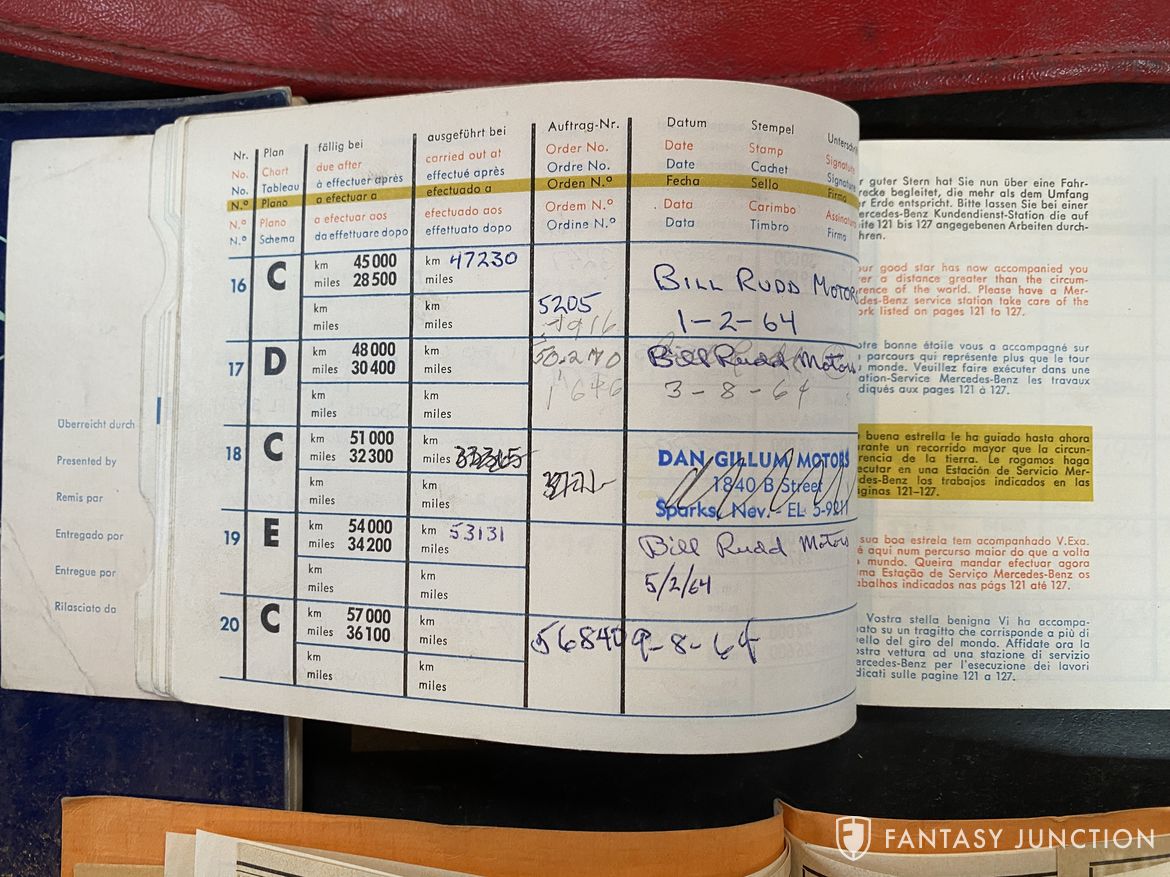 Nr. Plan fällig bei ausgeführt bei Auftrag-Nr. Datum Stempel
No. Chart due after carried out at Order No. Date Stamp
No. Tableau à effectuer après effectué après Ordre No. Date Cachet
N.º Plano a efectuar a efectuado a Orden N.º Fecha Sello Firma
N.º Plano a efectuar aos efectuado aos Ordem N.º Data Carimbo
N.º Schema da effettuare dopo effettuato dopo Ordine N.º Data Timbro Firma
16 C km 45 000 km 47230
miles 28 500 miles
BILL RUDD MOTORS
km km 5205
miles miles 1-2-64
17 D km 48 000 km
miles 30 400 miles
Bill Rudd Motors
km km
miles miles 3-8-64
18 C km 51 000 km
miles 32 300 miles
DAN GILLUM MOTORS
km km 1840 B Street
miles miles Sparks, Nev. - EL 5-9211
19 E km 54 000 km 53131
miles 34 200 miles Bill Rudd Motors
km km
miles miles 5/2/64
20 C km 57 000 km
miles 36 100 miles 56840 9-8-64
km km
miles miles
Überreicht durch
Presented by
Remis par
Entregado por
Entregue por
Rilasciato da
guter Stern hat Sie nun über eine Fahr-
recke begleitet, die mehr als dem Umfang
r Erde entspricht. Bitte lassen Sie bei einer
ercedes-Benz Kundendienst-Station die auf
ite 121 bis 127 angegebenen Arbeiten durch-
hren.
ur good star has now accompanied you
er a distance greater than the circum-
rence of the world. Please have a Mer-
des-Benz service station take care of the
ork listed on pages 121 to 127.
otre bonne étoile vous a accompagné sur
parcours qui représente plus que le tour
monde. Veuillez faire exécuter dans une
ation-Service Mercedes-Benz les travaux
diqués aux pages 121 à 127.
buena estrella le ha guiado hasta ahora
urante un recorrido mayor que la circun-
rencia de la tierra. Le rogamos haga
ecutar en una Estación de Servicio Mer-
des-Benz los trabajos indicados en las
ginas 121-127.
sua boa estrela tem acompanhado V.Exa.
é aqui num percurso maior do que a volta
mundo. Queira mandar efectuar agora
ma Estação de Serviço Mercedes-Benz os
abalhos indicados nas págs 121 até 127.
Vostra stella benigna Vi ha accompa-
nato su un tragitto che corrisponde a più di
ello del giro del mondo. Affidate ora la
ostra vettura ad una stazione di servizio
ercedes-Benz per l'esecuzione dei lavori
dicati sulle pagine 121 a 127.
FANTASY JUNCTION